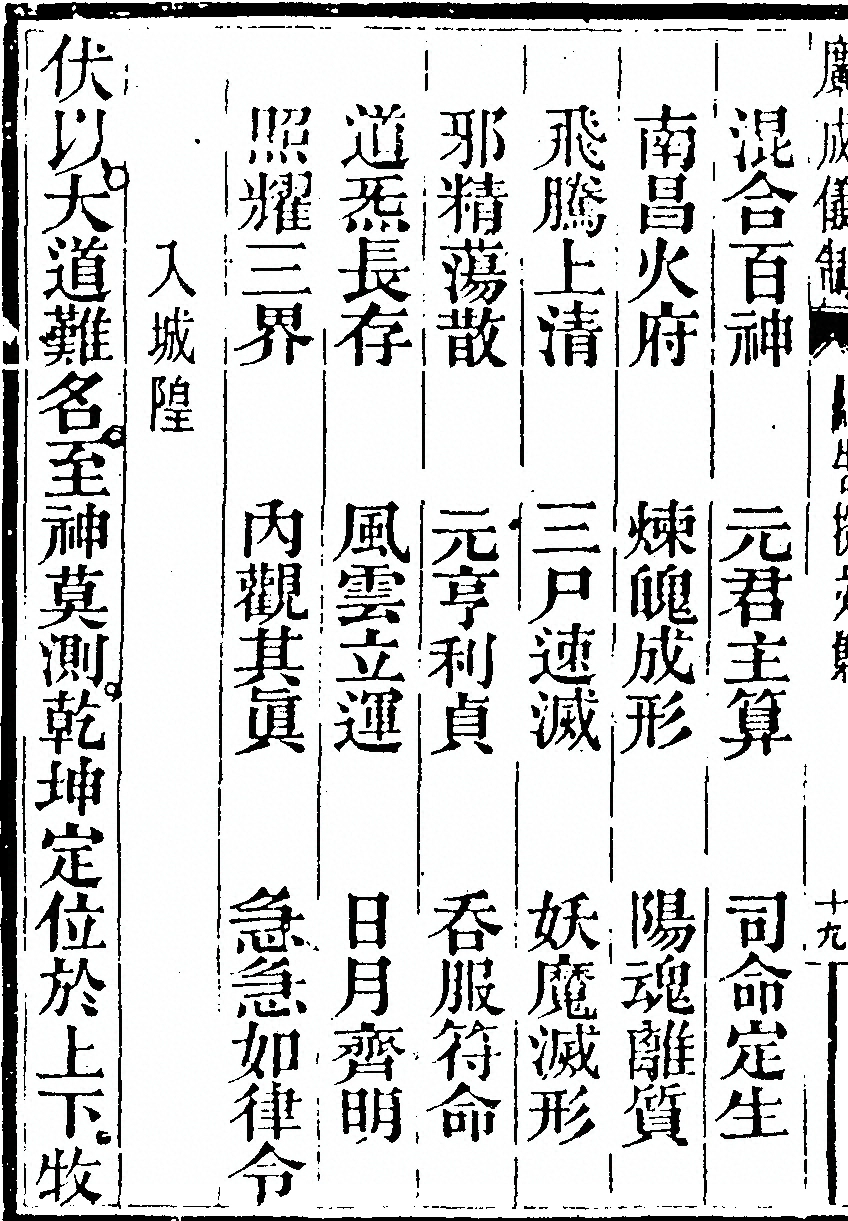 廣成儀制
十九
混合百神　元君主算　司命定生
南昌火府　煉魄成形　陽魂離質
飛騰上清　三尸速滅　妖魔滅形
邪精蕩散　元亨利貞　吞服符命
道炁長存　風雲立運　日月齊明
照耀三界　內觀其眞　急急如律令
入城隍
伏以。大道難名。至神莫測。乾坤定位於上下。牧